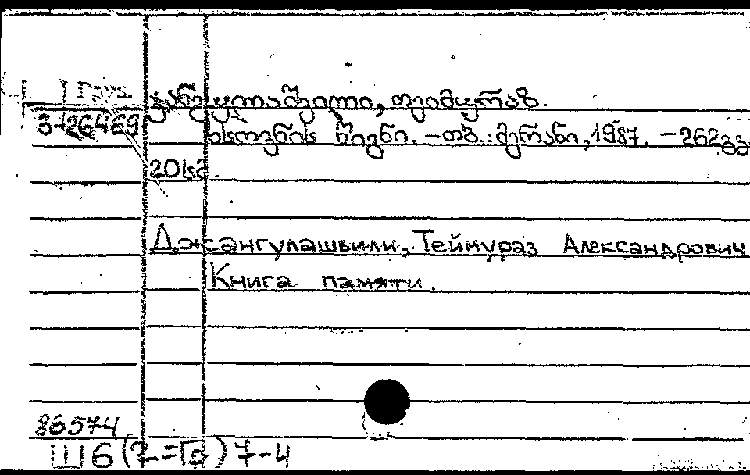 Груз
ჯანგულაშვილი, თეიმურაზ.
3-26469
ხსოვნის წიგნი. -თბ.: მერანი, 1987. -262გვ.
20სმ.
Джангулашвили, Теймураз Александрович
Книга памяти.
86574
Ш6(2=Гр)7-4